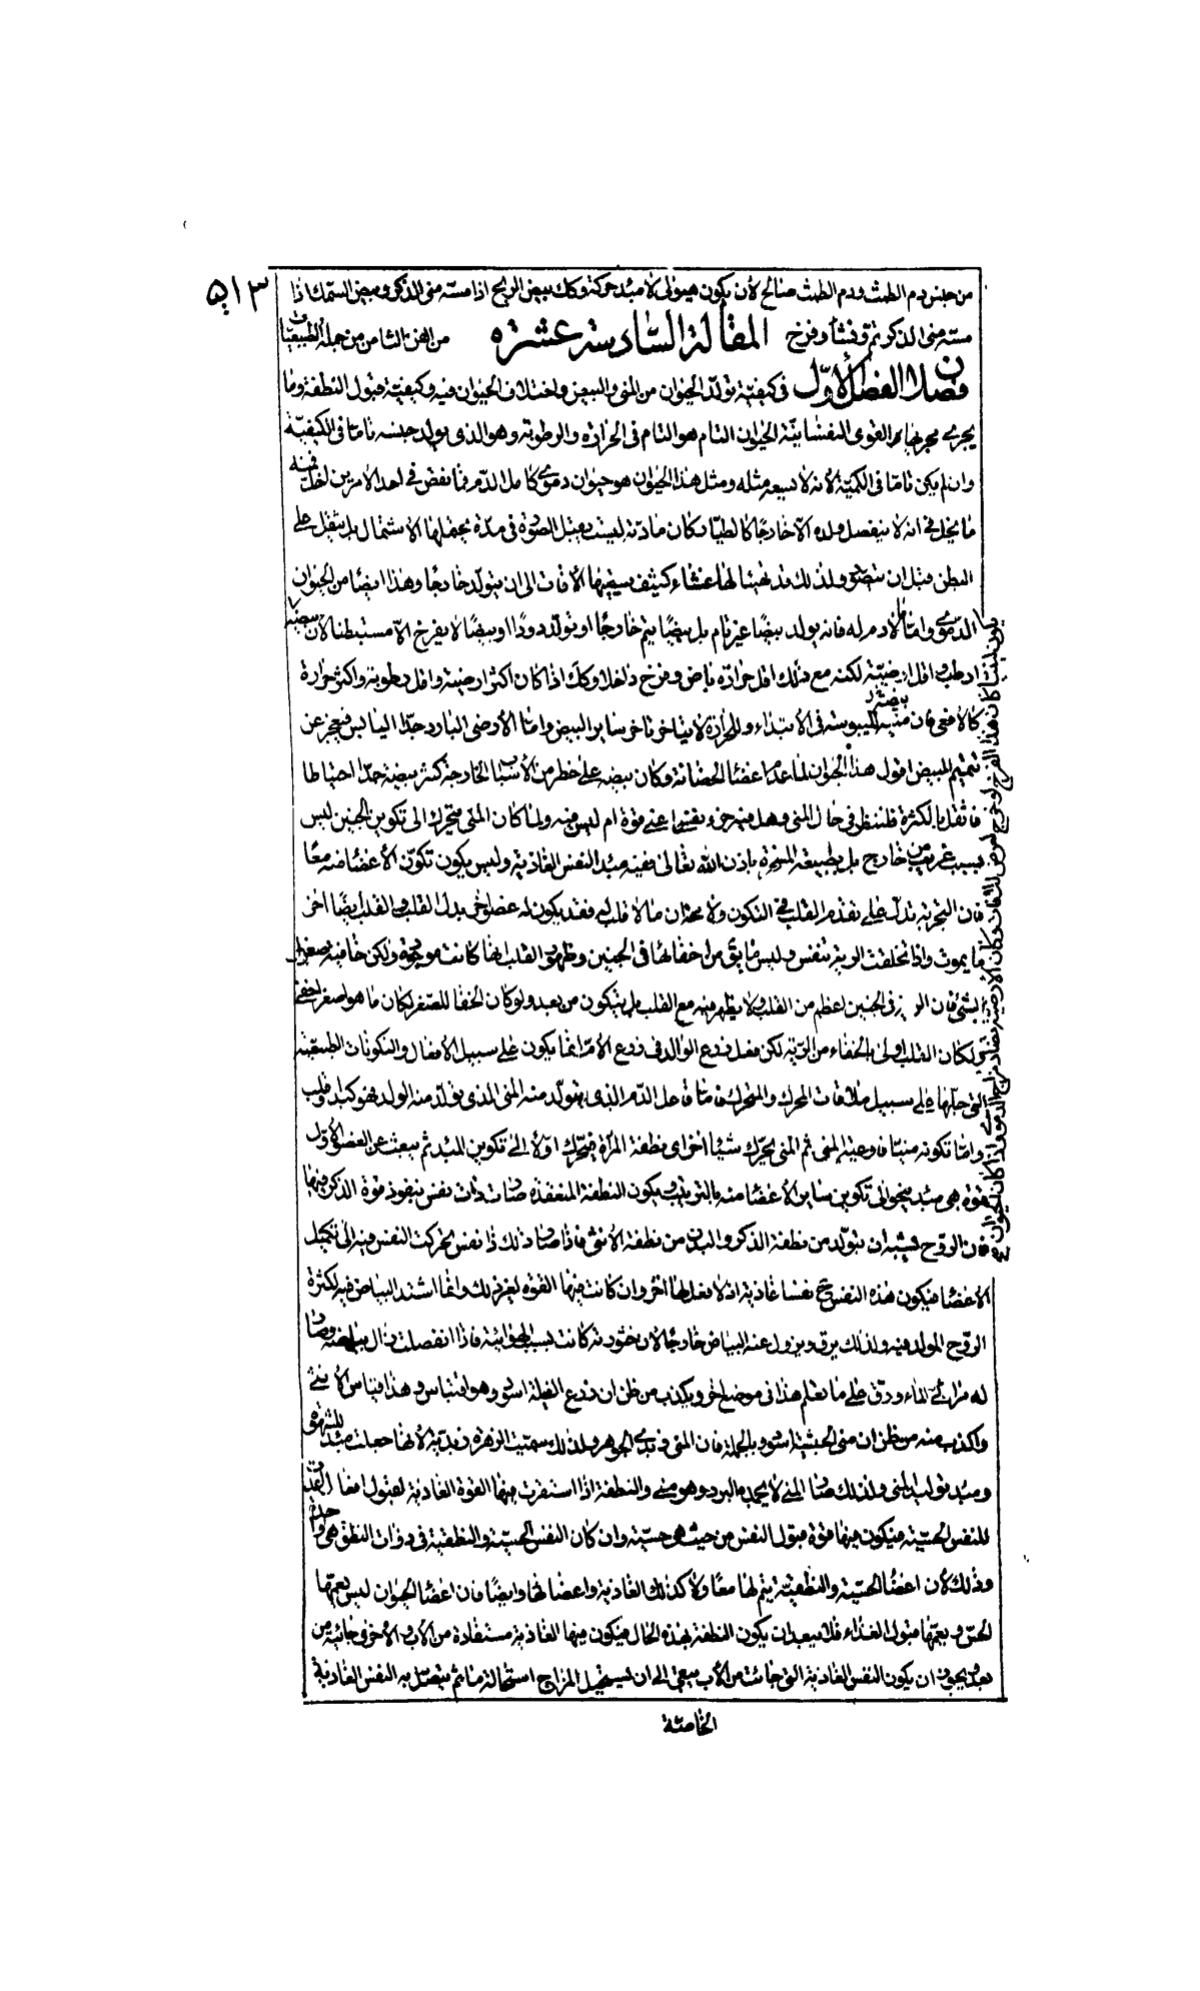 ٥١٣
من جنس دم الطمث ودم الطمث صالح لأن يكون هيولى لا مبدء حركة وكك بيض الريح اذا مسته منى الذكر وبيض السمك اذا
مسته منى الذكر تم ونشأ وفرخ المقالة السادسة عشره من الفن الثامن من جملة الطبيعيات
فصلان الفصل الأول فى كيفية تولد الحيوان من المنى والبيض واختلاف الحيوان فيه وكيفية قبول النطفة وما
يجرى مجريها القوى النفسانية الحيوان التام هو التام فى الحرارة والرطوبة وهو الذى يولد جنسه تاما فى الكيفية
وان لم يكن تاما فى الكمية لأنه لا يسعه مثله ومثل هذا الحيوان هو حيوان دموى كامل الدم فما نقض فى احد الأمرين
ما يخل فى انه لا ينفصل ولده الا خارجا كالطيار كان مادته ليست يقبل الصورة فى مدة يحملها الاشتمال بل يثقل على
البطن قبل ان يتصور ولذلك قد تهيئا لها غشاء كثيف يقيها الأفات الى ان يتولد خارجا وهذا ايضا من الحيوان
الدموى واما ما لا دم له فانه يولد بيضا غير تام بل بيضا يتم خارجا او يولد دودا او بيضا لا يفرخ الا مستبطنا لان بيضته
ارطب واقل ارضية لكنه مع ذلك اقل حرارة باض وفرخ داخلا وكك اذا كان اكثر ارضية واقل رطوبة واكثر حرارة
كالافعى فان بيضته اليبوسة فى الأبتداء وللحرارة لا يتاخر تاخر ساير البيض واما الأرضى البارد جدا اليابس فيعجز عن
تتميم البيض اقول هذا الحيوان لما عدم اعضا الحضانة وكان بيضه على خطر من الأسباب الخارجة كثر بيضه جدا احتياطا
فاثقل بالكثرة فلننظر فى حال المنى وهل فيه جزء نفسى اعنى قوة ام ليس فيه ولما كان المنى يتحرك الى تكوين الجنين ليس
بسبب غريب من خارج بل بطبيعته المسخرة باذن الله تعالى ففيه مبدء النفس الغاذية وليس يكون تكون الأعضا منه معا
فان التجربة تدل على تقدم القلب فى التكون ولا محة ان ما لا قلب له فقد يكون له عضو اخر بدل القلب والقلب ايضا اخر
ما يموت واذا تخلقت الرية تنفس وليس ما بقى من اخفائها فى الجنين وظهور القلب انها كانت موجودة ولكن خافية لصغرها
بشئ فان الرية فى الجنين اعظم من القلب ولا يظهر فيه مع القلب بل يتكون من بعد ولو كان الخفا للصغر لكان ما هو اصغر اخفى
ولكان القلب اولى بالخفاء من الرية لكن فعل زرع الوالد فى زرع الأم انما يكون على سبيل الافعال والتكونات الطبيعية
التى جلها على سبيل ملاقات المحرك والمتحرك فاما فاعل الدم الذى يتولد منه المنى الذى يولد منه الولد فهو كبد او قلب
واما تكونه منيا فاوعية المنى ثم المنى يحرك شيئا اخر اى نطفة المرأة فيتحرك اولا الى تكوين المبدء ثم يبعث عن العضو الأول
قوة هى مبدء ينحو الى تكوين ساير الأعضا منه بالترتيب ويكون النطفة المنعقدة صارت ذات نفس بنفوذ قوة الذكر فيها
فان الروح يشبه ان يتولد من نطفة الذكر والبدن من نطفة الأنثى فاذا صار ذلك ذا نفس يحركت النفس فيه الى تكميل
الاعضا فيكون هذه النفس ح نفسا غاذية اذ لا فعل لها اخر وان كانت فيها القوة لغير ذلك وانما اشتد البياض فيه لكثرة
الروح المولد فيه ولذلك يرق ويزول عنه البياض خارجا لان خثورته كانت بسبب الهوائية فاذا انفصلت زال بياضه وصار
له مزاج الماء ورق على ما تعلم هذا فى موضع اخر ويكذب من ظن ان زرع الفيلة اسود وهو اقتباس وهذا قياس الأبنى
واكذب منه من ظن ان منى الحبشية اسود بالجملة فان المنى زبدى الجوهر ولذلك سميت الزهرة زبدية لأنها جعلت مبدء للشهوة
ومبدء توليد المنى ولذلك صار المنى لا يجمده البرد وهو منى والنطفة اذا استقرت فيها القوة الغاذية لقبول افعا الغذا
للنفس الحسية فيكون فيها قوة قبول النفس من حيث هى حسية وان كان النفس الحسية والنطقية فى ذوات النطق هى واحدة
وذلك لأن اعضا الحسية والنطقية يتم لها معا ولا كذلك الغاذية واعضائها وايضا فان اعضا الحيوان ليس يعمها
الحس ويعمها قبول الغذاء فلا يبعد ان يكون النطفة بهذه الحال فيكون فيها الغاذية مستفادة من الأب والأخرى جائية من
بعد ويجوز ان يكون النفس الغاذية التى جائت من الأب يبقى الى ان يستحيل المزاج استحالة ما ثم يتصل به النفس الغاذية
الخاصة